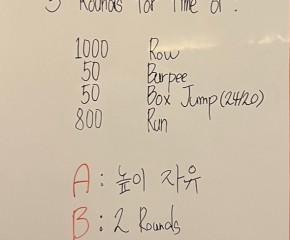 3 Rounds for Time of :
1000 Row
50 Burpee
50 Box Jump (24/20)
800 Run
A : 높이 자유
B : 2 Rounds